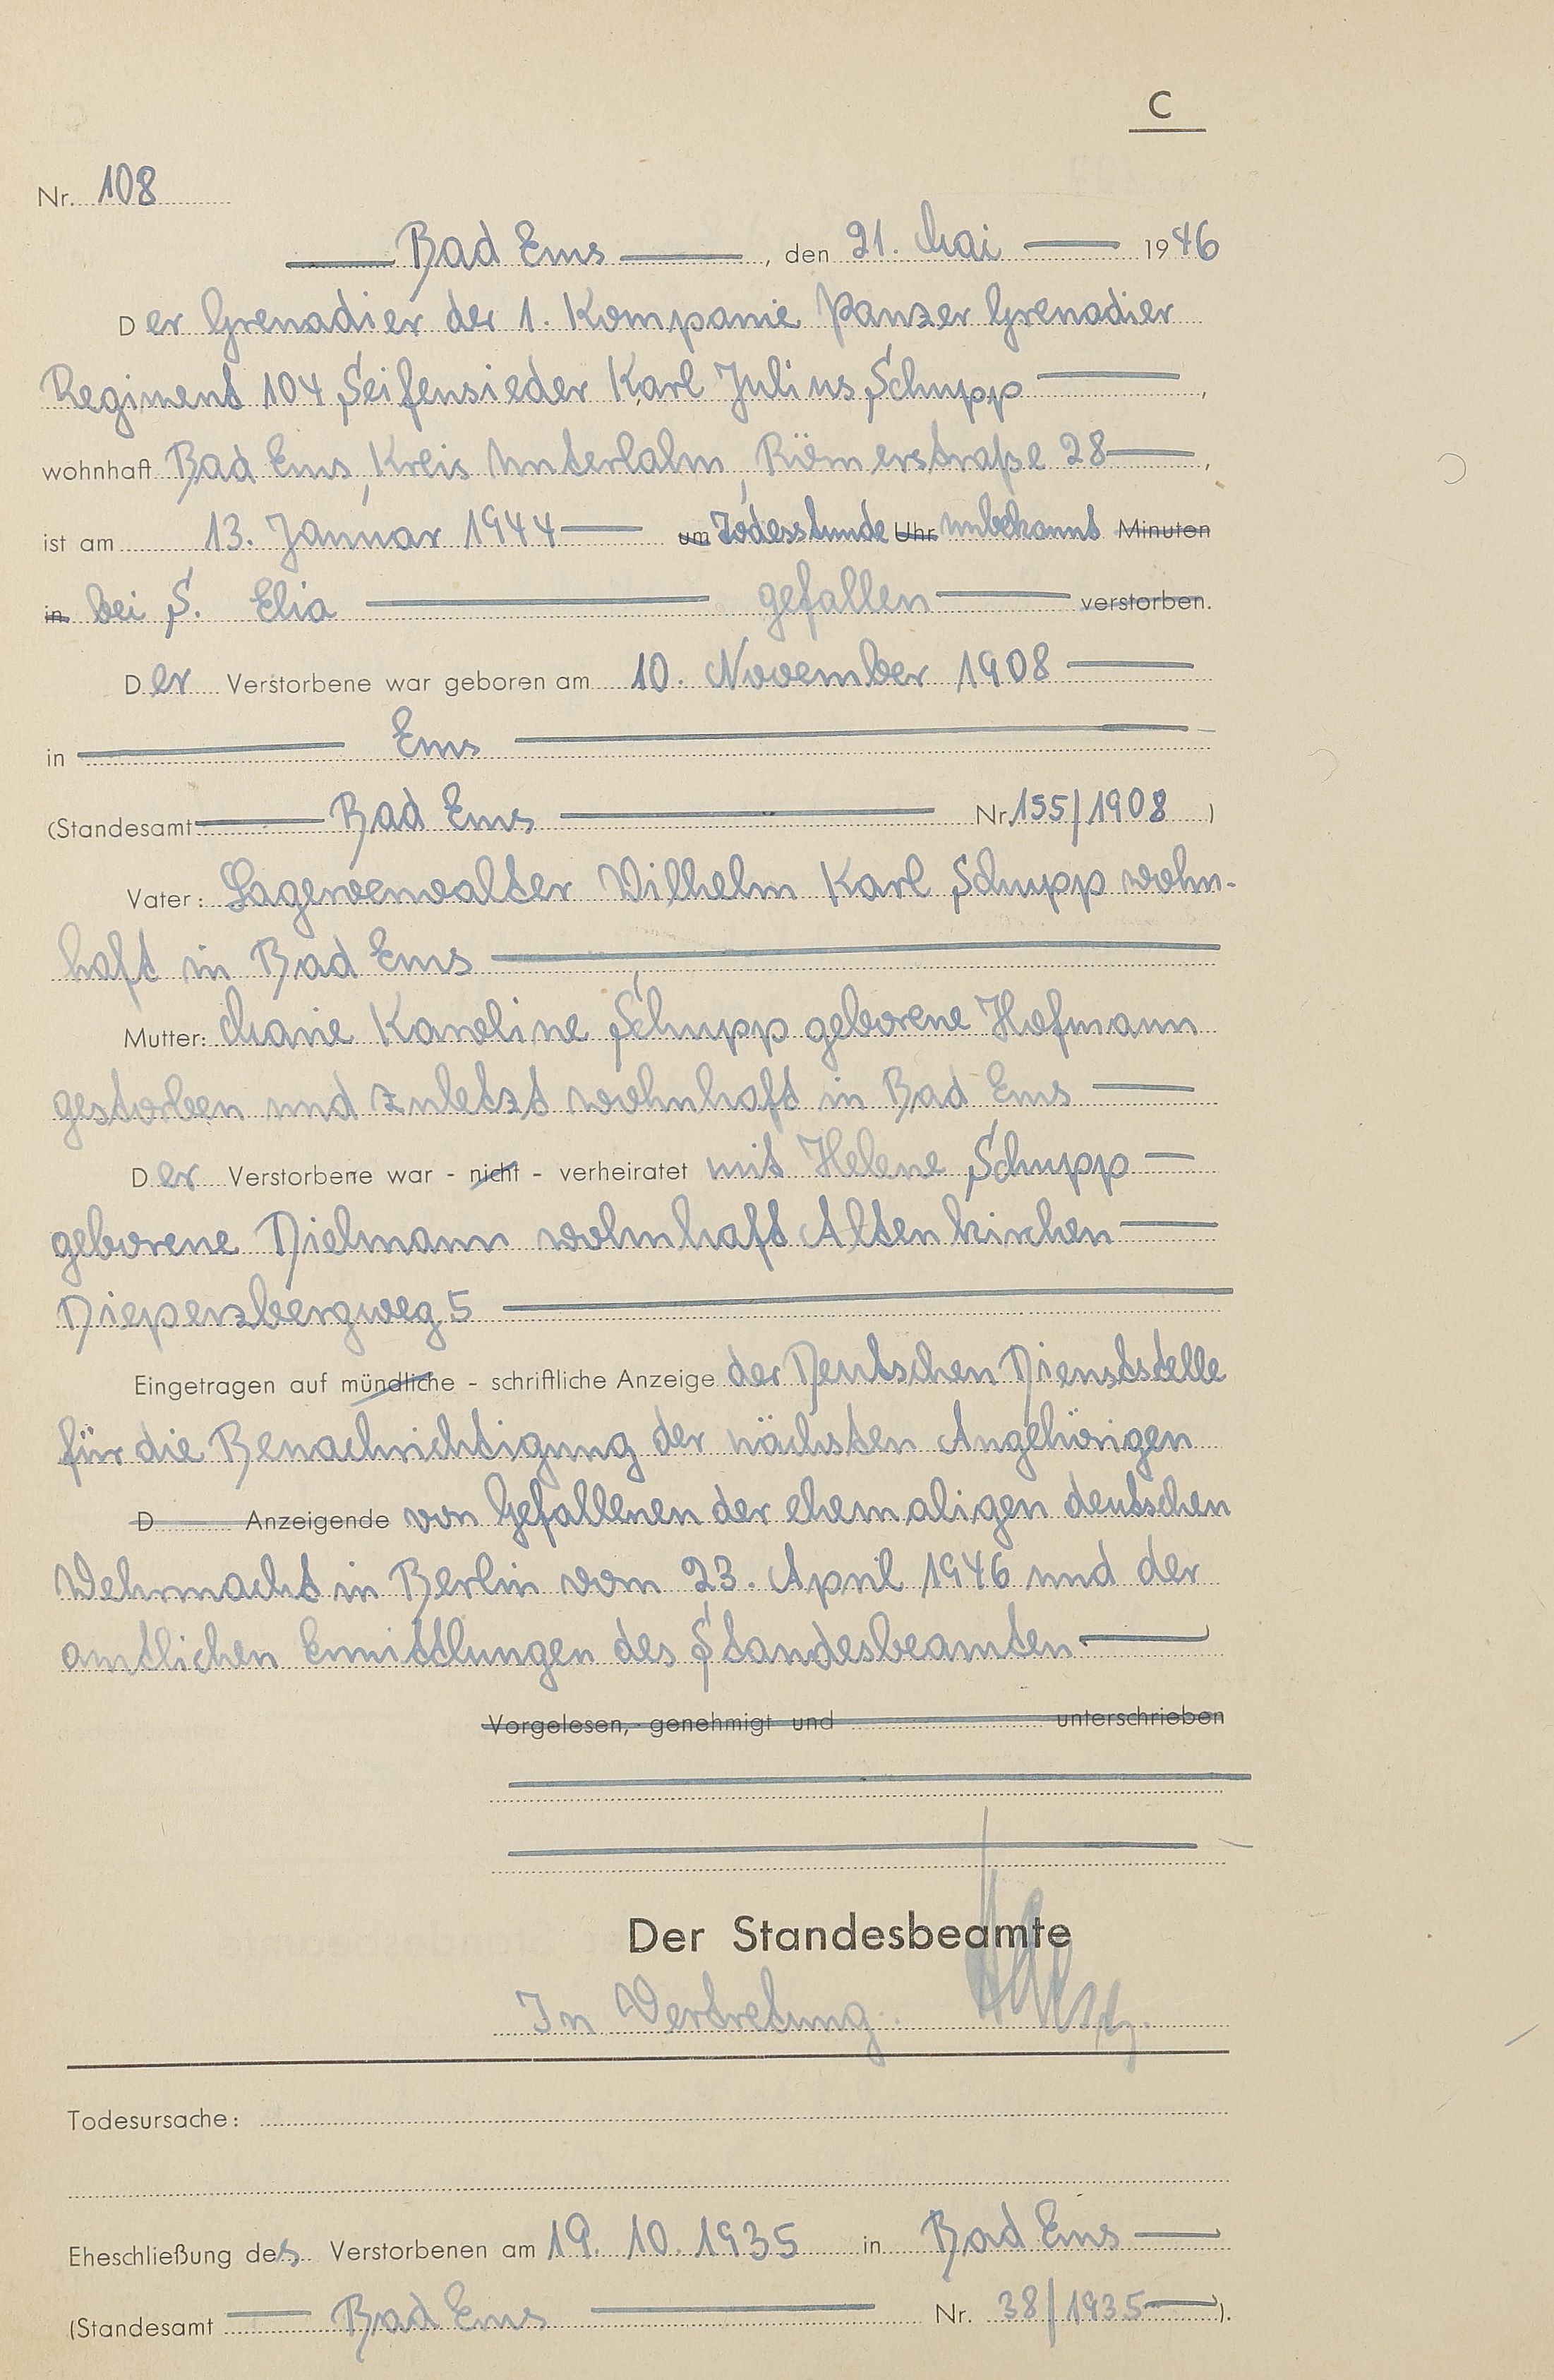 C
Nr. 108
Bad Ems, den 21. Mai 1946
Der Grenadier der 1. Kompanie Panzer Grenadier
Regiment 104, Seifensieder Karl Julius Schupp,
wohnhaft Bad Ems, Kreis Unterlahn, Römerstraße 28,
ist am 13. Januar 1944 um Todesstunde Uhr unbekannt Minuten
in bei S. Elia gefallen verstorben.
Der Verstorbene war geboren am 10. November 1908
in Ems
(Standesamt Bad Ems Nr. 155/1908)
Vater: Lagerverwalter Wilhelm Karl Schupp wohn-
haft in Bad Ems
Mutter: Marie Karoline Schupp geborene Hofmann
gestorben und zuletzt wohnhaft in Bad Ems
Der Verstorbene war - nicht - verheiratet mit Helene Schupp
geborene Dielmann wohnhaft Altenkirchen
Dieperzbergweg 5
Eingetragen auf mündliche - schriftliche Anzeige der Deutschen Dienststelle
für die Benachrichtigung der nächsten Angehörigen
D Anzeigende von Gefallenen der ehemaligen deutschen
Wehrmacht in Berlin vom 23. April 1946 und der
amtlichen Ermittlungen des Standesbeamten
Vorgelesen, genehmigt und unterschrieben
Der Standesbeamte
In Vertretung:
Todesursache:
Eheschließung des Verstorbenen am 19. 10. 1935 in Bad Ems
(Standesamt Bad Ems Nr. 38/1935).